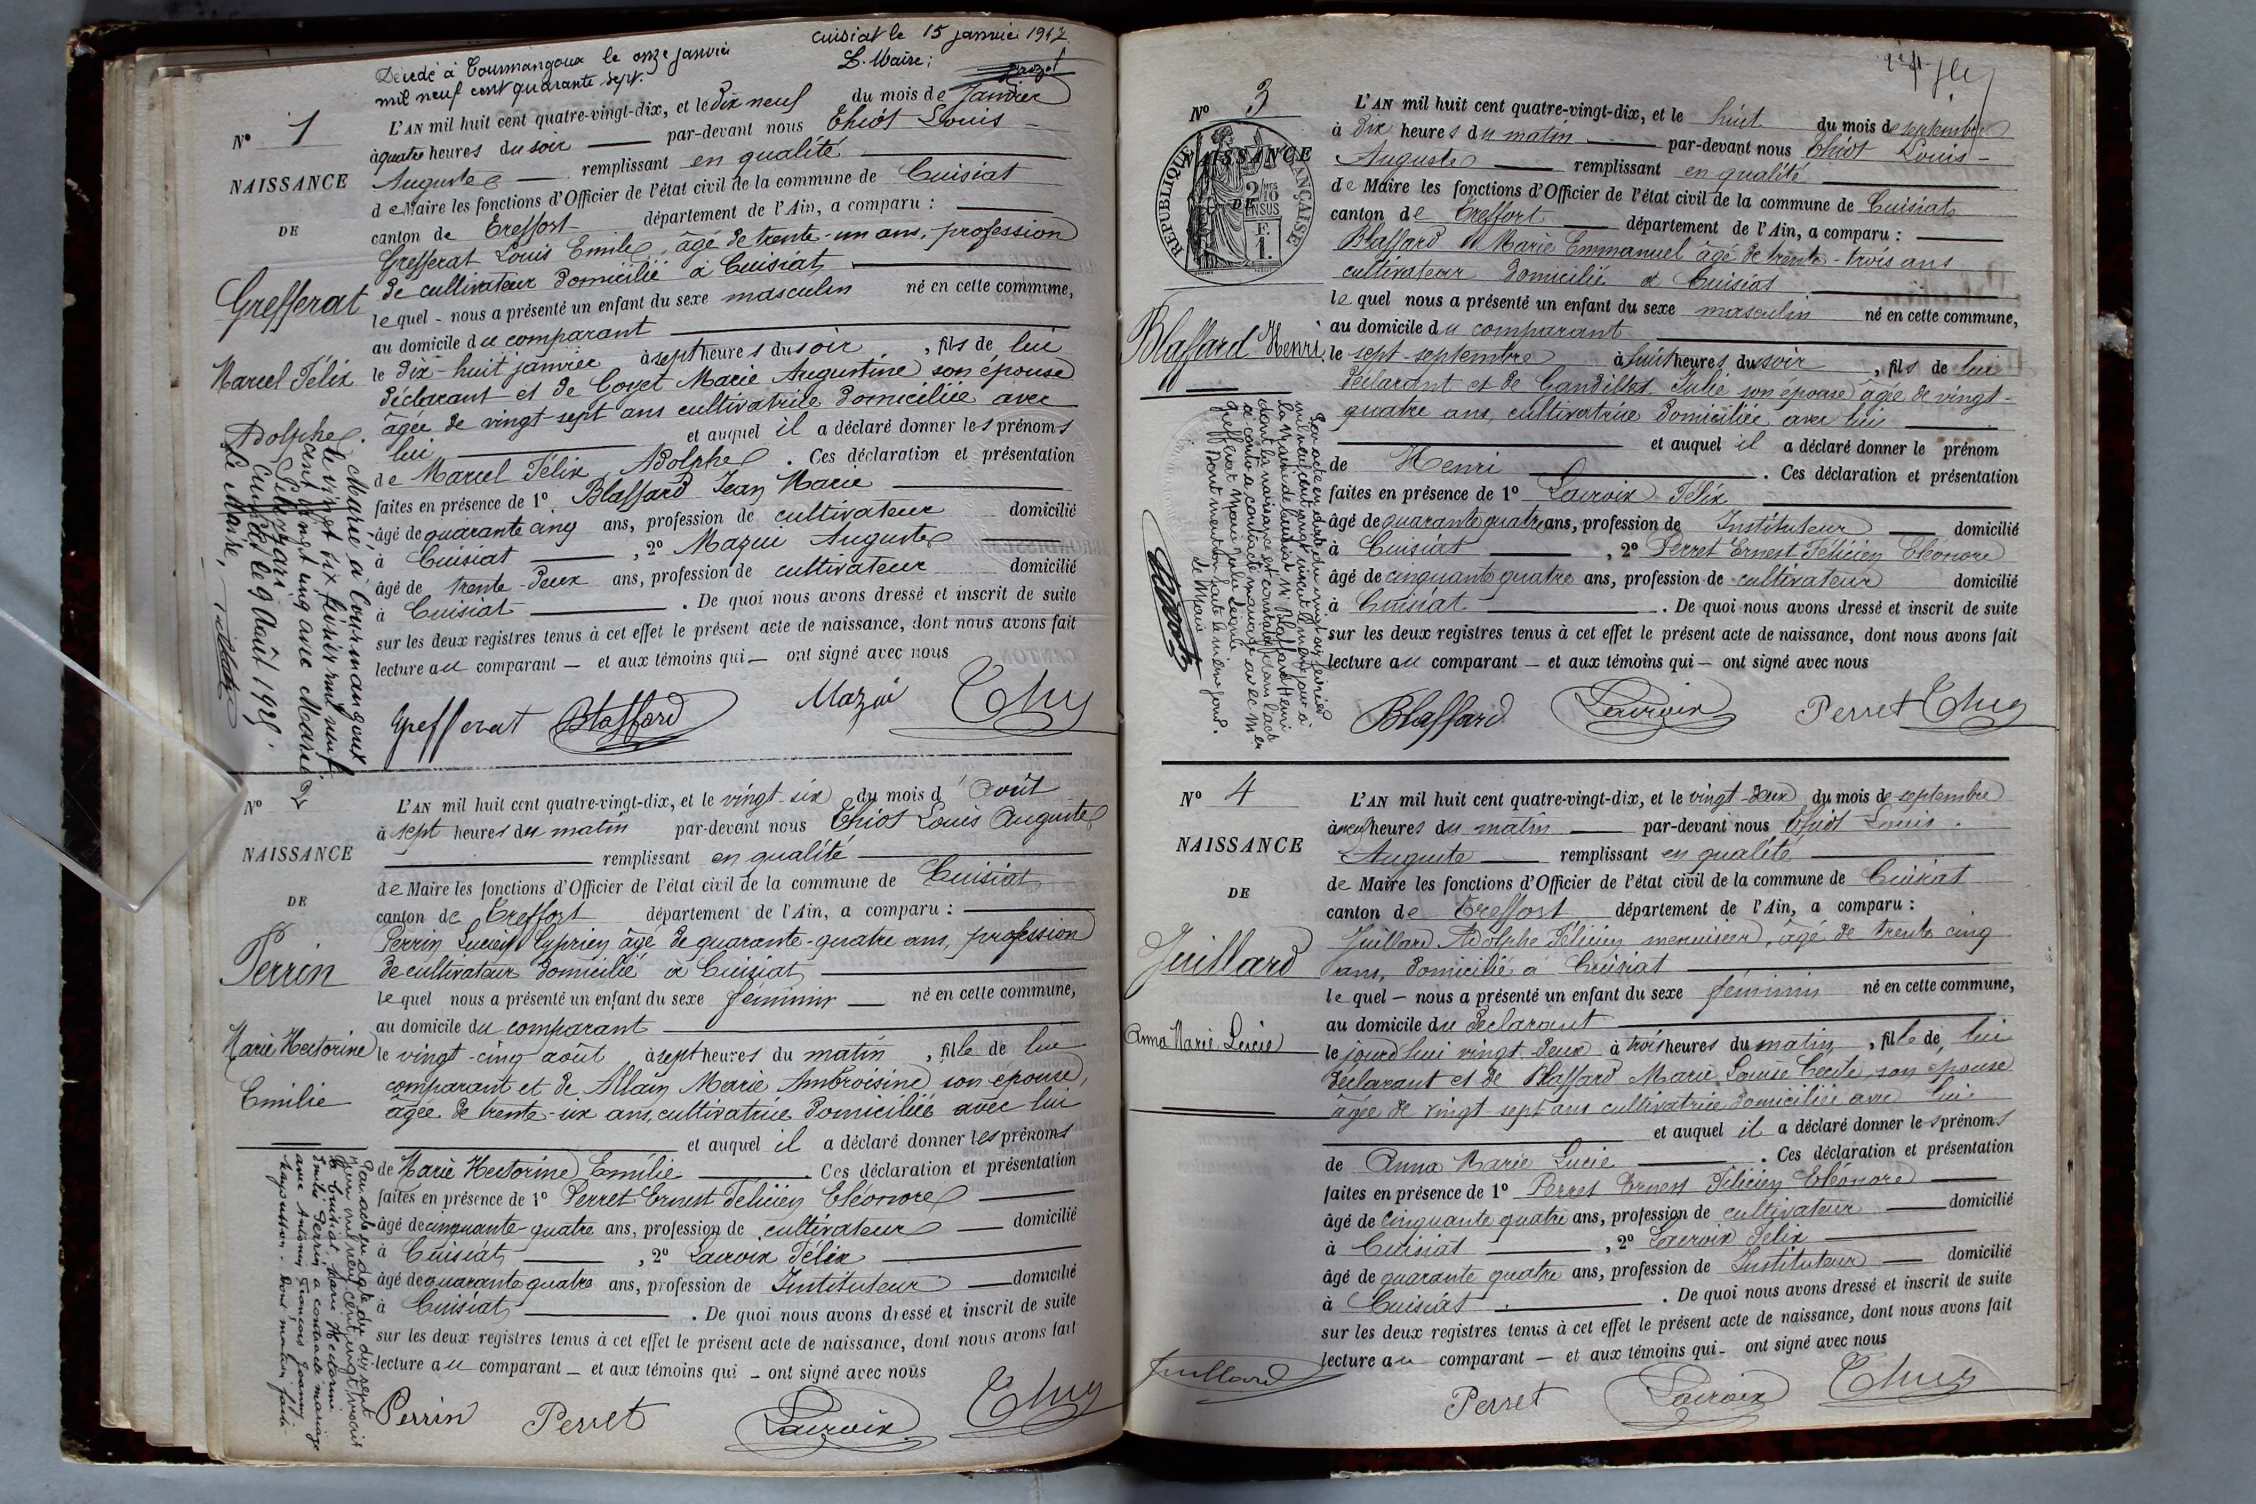 Décédé à Courmangoux le onze janvier
mil neuf cent quarante sept.
Cuisiat le 15 janvier 1947
L. Maire;
N° 1
NAISSANCE
DE
Grefferat
Marcel Félix
Adolphe.
L'AN mil huit cent quatre-vingt-dix, et le dix neuf du mois de Janvier
à quatre heures du soir par-devant nous Chiot Louis
Auguste remplissant en qualité
de Maire les fonctions d'Officier de l'état civil de la commune de Cuisiat
canton de Treffort département de l'Ain, a comparu :
Grefferat Louis Emile, âgé de trente-un ans, profession
de cultivateur domicilié à Cuisiat
lequel - nous a présenté un enfant du sexe masculin né en cette commune,
au domicile du comparant
le dix-huit janvier à sept heures du soir, fils de lui
déclarant et de Goyet Marie Augustine son épouse
âgée de vingt-sept ans cultivatrice domiciliée avec
lui et auquel il a déclaré donner les prénoms
de Marcel Félix Adolphe. Ces déclaration et présentation
faites en présence de 1° Blaffard Jean Marie
âgé de quarante cinq ans, profession de cultivateur domicilié
à Cuisiat, 2° Mazui Auguste
âgé de trente-deux ans, profession de cultivateur domicilié
à Cuisiat. De quoi nous avons dressé et inscrit de suite
sur les deux registres tenus à cet effet le présent acte de naissance, dont nous avons fait
lecture au comparant — et aux témoins qui — ont signé avec nous
Marié à Courmangoux
le vingt six février mil neuf
cent vingt cinq avec Marie
Cuisiat le 9 Août 1925.
Le Maire,
Grefferat Blaffard Mazui
N°
NAISSANCE
DE
Perrin
Marie Hectorine
Emilie
L'AN mil huit cent quatre-vingt-dix, et le vingt-six du mois d'Août
à sept heures du matin par-devant nous Chiot Louis Auguste
remplissant en qualité
de Maire les fonctions d'Officier de l'état civil de la commune de Cuisiat
canton de Treffort département de l'Ain, a comparu :
Perrin Lucien Cyprien âgé de quarante-quatre ans, profession
de cultivateur domicilié à Cuisiat
lequel nous a présenté un enfant du sexe féminin né en cette commune,
au domicile du comparant
le vingt-cinq août à sept heures du matin, fille de lui
comparant et de Allain Marie Ambroisine son épouse,
âgée de trente-six ans, cultivatrice domiciliée avec lui
et auquel il a déclaré donner les prénoms
de Marie Hectorine Emilie Ces déclaration et présentation
faites en présence de 1° Perret Ernest Félicien Eléonore
âgé de cinquante-quatre ans, profession de cultivateur domicilié
à Cuisiat, 2° Lacroix Félix
âgé de quarante quatre ans, profession de Instituteur domicilié
à Cuisiat. De quoi nous avons dressé et inscrit de suite
sur les deux registres tenus à cet effet le présent acte de naissance, dont nous avons fait
lecture au comparant — et aux témoins qui - ont signé avec nous
Par acte en date du dix sept
mil neuf cent vingt inscrit
à Cuisiat Marie Hectorine
Emilie Perrin a contracté mariage
avec Antoine François
Dont mention faite
Perrin Perret Lacroix
N° 3
NAISSANCE
DE
REPUBLIQUE FRANÇAISE
2/10 EN SUS
F. 1.
Blaffard Henri.
L'AN mil huit cent quatre-vingt-dix, et le huit du mois de septembre
à dix heures du matin par-devant nous Chiot Louis -
Auguste remplissant en qualité
de Maire les fonctions d'Officier de l'état civil de la commune de Cuisiat
canton de Treffort département de l'Ain, a comparu :
Blaffard Marie Emmanuel âgé de trente-trois ans
cultivateur domicilié à Cuisiat
lequel nous a présenté un enfant du sexe masculin né en cette commune,
au domicile du comparant
le sept septembre à huit heures du soir, fils de lui
déclarant et de Julie son épouse âgée de vingt-
quatre ans, cultivatrice domiciliée avec lui
et auquel il a déclaré donner le prénom
de Henri. Ces déclaration et présentation
faites en présence de 1° Lacroix Félix
âgé de quarante quatre ans, profession de Instituteur domicilié
à Cuisiat, 2° Perret Ernest Félicien Eléonore
âgé de cinquante quatre ans, profession de cultivateur domicilié
à Cuisiat. De quoi nous avons dressé et inscrit de suite
sur les deux registres tenus à cet effet le présent acte de naissance, dont nous avons fait
lecture au comparant — et aux témoins qui — ont signé avec nous
Par acte en date du vingt six février
mil neuf cent vingt inscrit le même jour à
la Mairie de Cuisiat M. Blaffard Henri
dont la naissance est constatée dans l'acte
ci contre a contracté mariage avec
Grefferat Marie
Dont mention faite le même jour.
Le Maire
Blaffard Lacroix Perret
N° 4
NAISSANCE
DE
Juillard
Anna Marie Lucie
L'AN mil huit cent quatre-vingt-dix, et le vingt-deux du mois de septembre
à neuf heures du matin par-devant nous Chiot Louis.
Auguste remplissant en qualité
de Maire les fonctions d'Officier de l'état civil de la commune de Cuisiat
canton de Treffort département de l'Ain, a comparu :
Juillard Adolphe Félicien menuisier, âgé de trente cinq
ans, domicilié à Cuisiat
lequel — nous a présenté un enfant du sexe féminin né en cette commune,
au domicile du déclarant
le jourd'hui vingt deux à trois heures du matin, fille de lui
déclarant et de Blaffard Marie Louise Cécile, son épouse
âgée de vingt-sept ans cultivatrice domiciliée avec lui
et auquel il a déclaré donner les prénoms
de Anna Marie Lucie. Ces déclaration et présentation
faites en présence de 1° Perret Ernest Félicien Eléonore
âgé de cinquante quatre ans, profession de cultivateur domicilié
à Cuisiat, 2° Lacroix Félix
âgé de quarante quatre ans, profession de Instituteur domicilié
à Cuisiat. De quoi nous avons dressé et inscrit de suite
sur les deux registres tenus à cet effet le présent acte de naissance, dont nous avons fait
lecture au comparant — et aux témoins qui - ont signé avec nous
Juillard Perret Lacroix